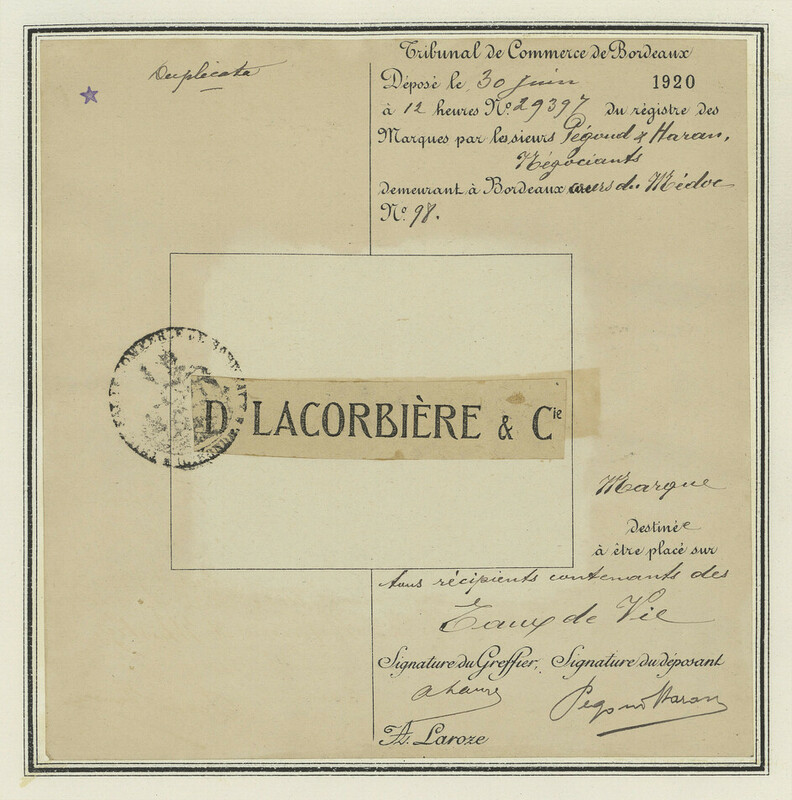 Duplicata
Tribunal de Commerce de Bordeaux
Déposé le 30 Juin 1920
à 12 heures No. 29397 du régistre des
Marques par les sieurs Pégoud & Haran,
Négociants
demeurant à Bordeaux cours du Médoc
No. 98.
TRIBUNAL DE COMMERCE DE BORDEAUX
GIRONDE
D LACORBIÈRE & Cie
Marque
destinée
à être placé sur
tous récipients contenants des
Eaux de Vie
Signature du Greffier, Signature du déposant
Pegoud Haran
A. Laroze